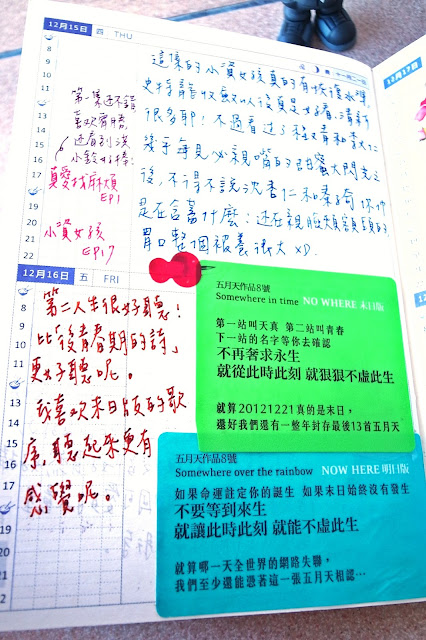 12月15日 四 THU
這樣的小資女孩真的有恢復水準,
史特龍收斂以後真是好看、清新
很多耶!不過看過了程又青和李大仁
幾乎每見必親嘴的甜蜜大閃光之
後,不得不說沈杏仁和秦子奇你們
是在含蓄什麼:還在親臉頰額頭的
胃口整個被養很大 XD.
第一集還不錯
喜歡
還看到
小鈴好棒
真愛找麻煩
EP1
小資女孩
EP.17
12月17日
12月16日 五 FRI
第二人生很好聽!
比「後青春期的詩」
更好聽呢。
我喜歡末日版的歌
序,聽起來更有
感覺呢。
五月天作品8號
Somewhere in time NO WHERE 末日版
第一站叫天真 第二站叫青春
下一站的名字等你去確認
不再奢求永生
就從此時此刻 就狠狠不虛此生
就算20121221真的是末日,
還好我們還有一整年封存最後13首五月天
五月天作品8號
Somewhere over the rainbow NOW HERE 明日版
如果命運註定你的誕生 如果末日始終沒有發生
不要等到來生
就讓此時此刻 就能不虛此生
就算哪一天全世界的網路失聯,
我們至少還能憑著這一張五月天相認…